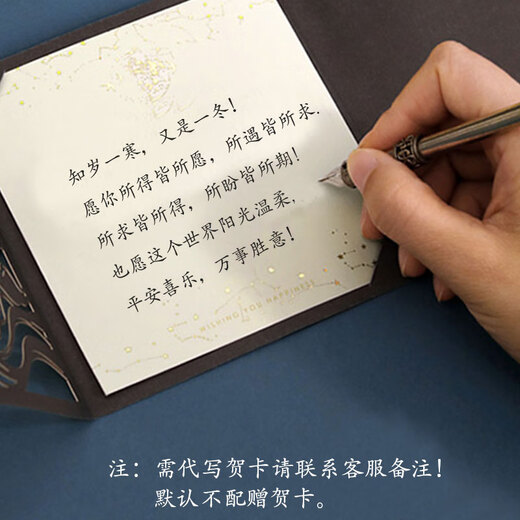 知岁一寒，又是一冬！
愿你所得皆所愿，所遇皆所求，
所求皆所得，所盼皆所期！
也愿这个世界阳光温柔，
平安喜乐，万事胜意！
WISHING YOU HAPPINESS
注：需代写贺卡请联系客服备注！
默认不配赠贺卡。